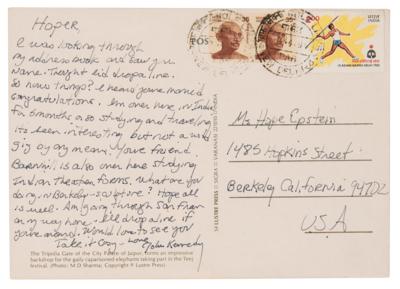 Hoper,
I was looking through
my address book and saw your
Name. Thought I'd drop a line.
So how things? I heard you're married
congratulations. Im over here, in India
for 6 months or so studying and traveling
its been interesting but not a world
gig by any means. Youre friend
is also over here studying
Indian Theatre forms. What are you
doing in Berkeley - sculpture? Hope all
is well. Am going through San Fran
on my way home. I'll drop a line if
you're around. Would love to see you
Take it Easy - Love,
John Kennedy
The Tripolia Gate of the City Palace of Jaipur, forms an impressive
backdrop for the gaily caparisoned elephants taking part in the Teej
festival. (Photo: M D Sharma; Copyright © Lustre Press)
LUSTRE PRESS
भारत
INDIA
Ms. Hope Epstein
1485 Hopkins Street
Berkeley California 94702
U.S.A